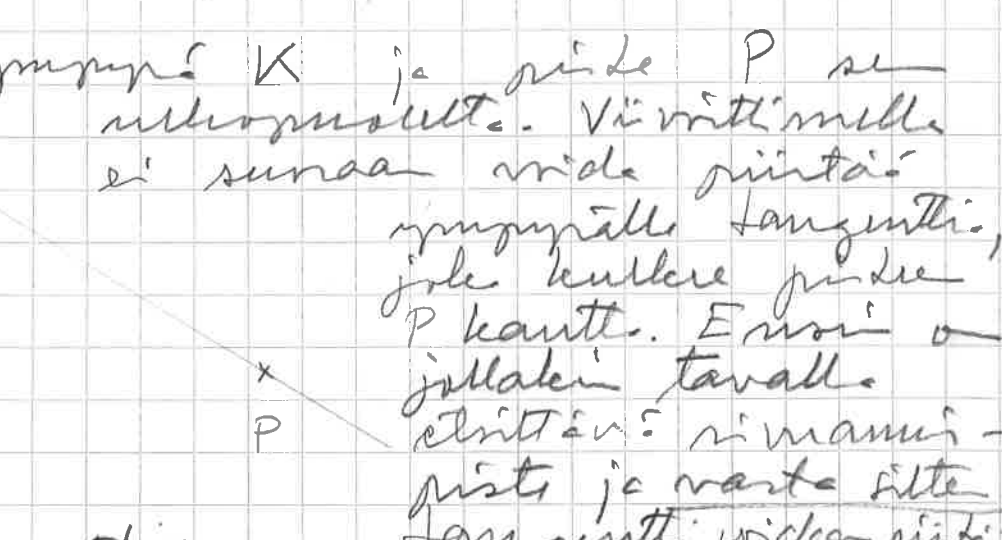 ympyrä K ja piste P sen
ulkopuolelta. Viivoittimella
ei suoraan voida piirtää
ympyrälle tangenttia,
joka kulkee pisteen
P kautta. Ensin on
jollakin tavalla
P etsittävä sivuamis-
piste ja vasta sitten